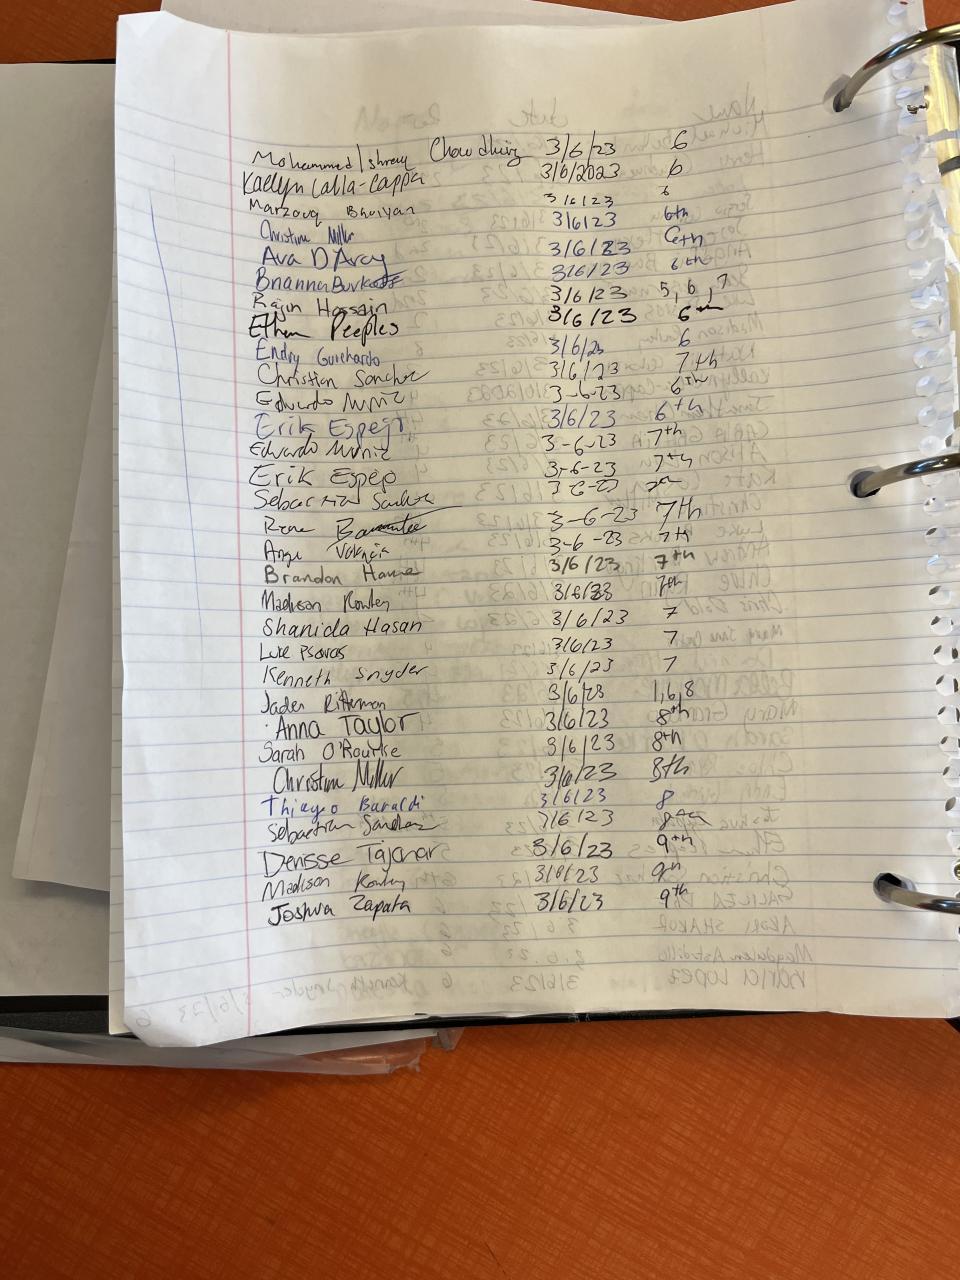 Mohammed Ishraq Chowdhury 3/6/23 6
Kaelyn Calla-Cappa 3/6/2023 6
Marzouq Bhuiyan 3/6/23 6
Christine Miller 3/6/23 6th
Ava D'Arcy 3/6/23 6th
Brianna 3/6/23 6th
Rajin Hossain 3/6/23 5, 6, 7
Ethan Peeples 3/6/23 6th
Endry Guichardo 3/6/23 6
Christian Sanchez 3/6/23 7th
Eduardo Muniz 3-6-23 6th
Erik Espejo 3/6/23 6th
Eduardo Muniz 3-6-23 7th
Erik Espejo 3-6-23 7th
Sebastian Sanchez 3-6-23 7th
3-6-23 7th
Ange Valencia 3-6-23 7th
Brandon 3/6/23 7th
Madison Rowley 3/6/23 7th
Shanida Hasan 3/6/23 7
Luke Psaras 3/6/23 7
Kenneth Snyder 3/6/23 7
Jaden Ritterman 3/6/23 1,6,8
Anna Taylor 3/6/23 8th
Sarah O'Rourke 3/6/23 8th
Christine Miller 3/6/23 8th
Thiago Baraldi 3/6/23 8
Sebastian Sanchez 3/6/23 8th
Denisse Tajonar 3/6/23 9th
Madison Rowley 3/6/23 9th
Joshua Zapata 3/6/23 9th